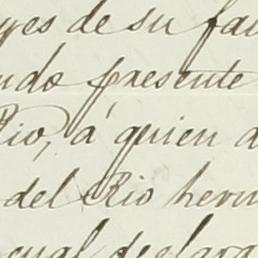 yes de su fau
udo presente
Rio, á quien a
del Rio herm
cual declara